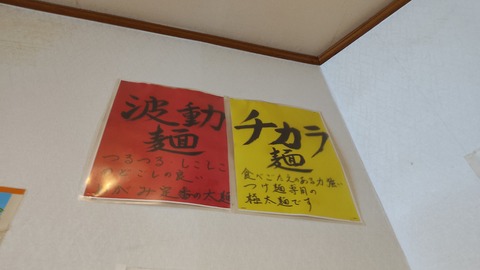 波動
麺
つるつる・しこしこ
のどごしの良い
がみ定番の太麺
チカラ
麺
食べごたえのある力強い
つけ麺専用の
極太麺です